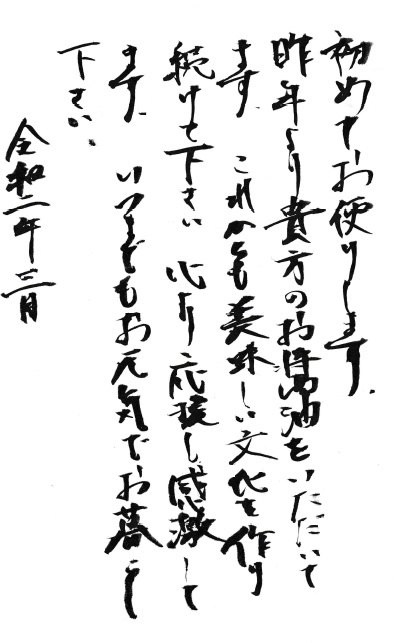 初めてお便りします。
昨年より貴方のお醤油をいただいて
ます。これからも美味しい文化を作り
続けて下さい 心より応援し感激して
ます。いつまでもお元気でお暮らし
下さい。
令和二年三月